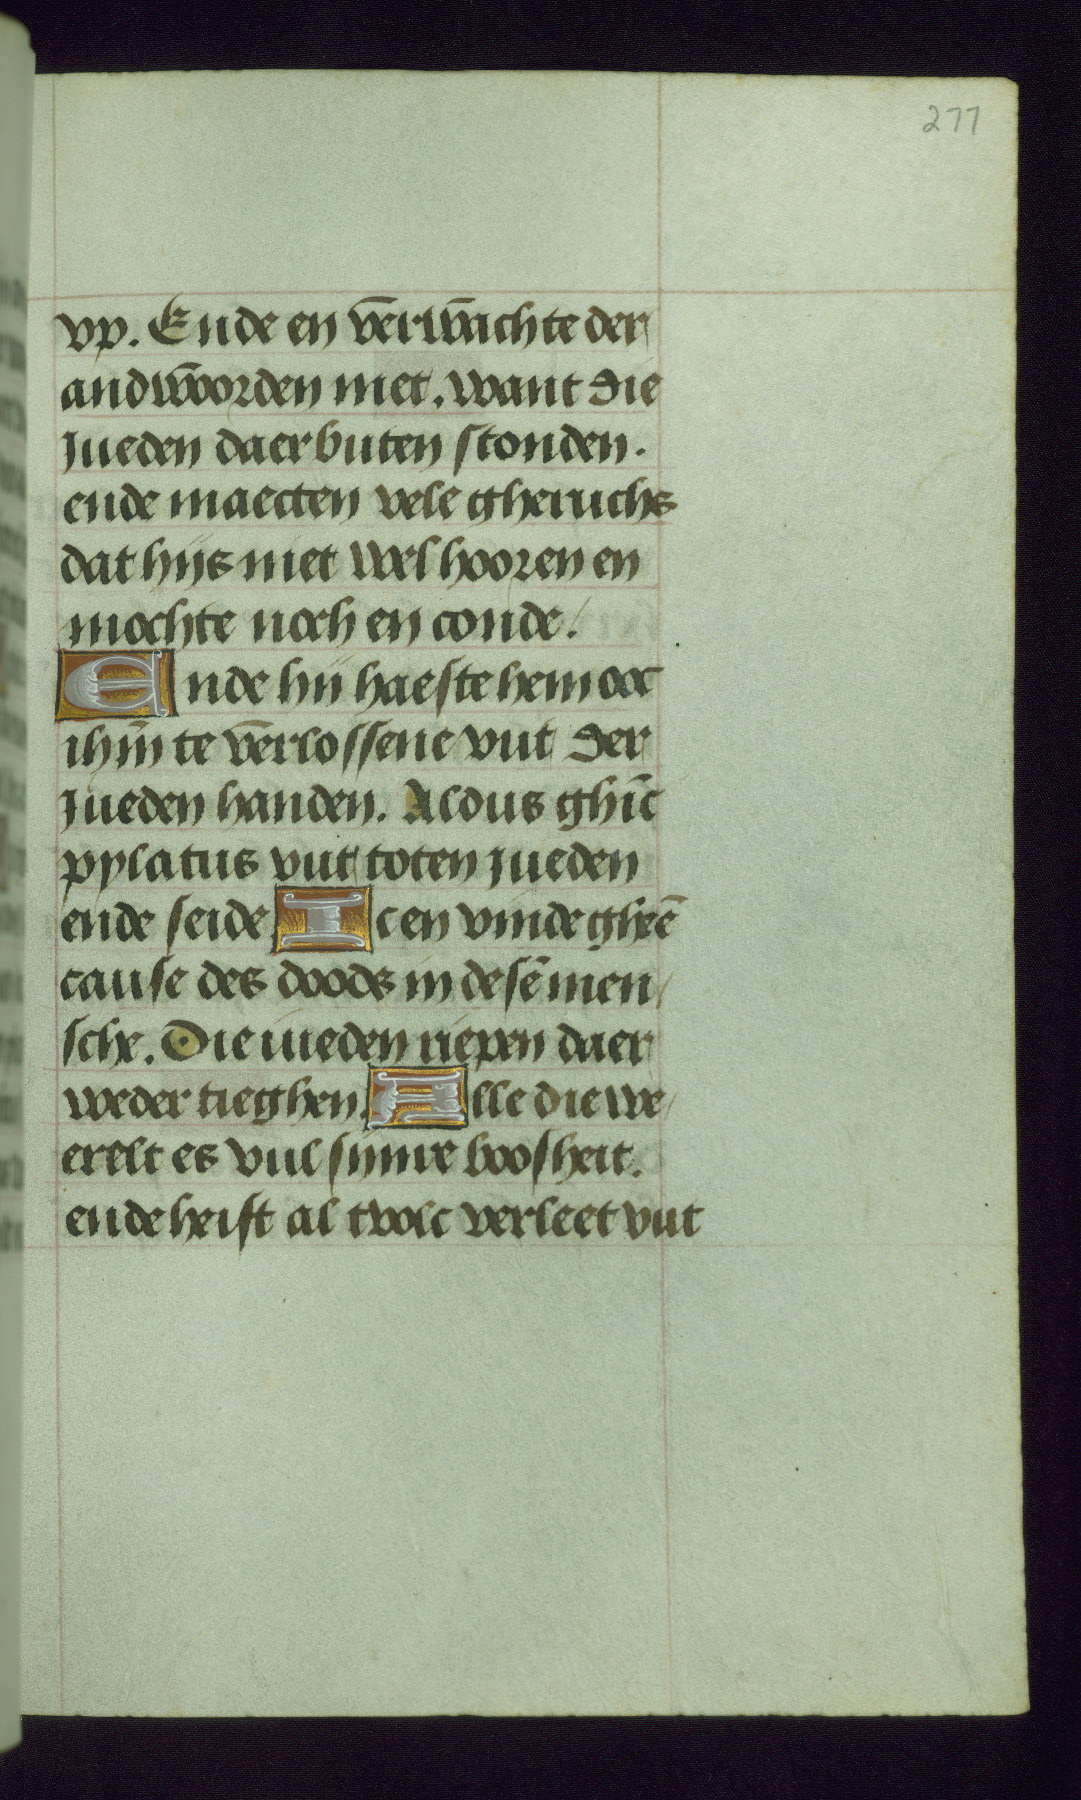 277
vp. Ende en v̄erwachte der
andwoorden niet. want die
Jueden daer buten stonden.
ende maecten vele gheruchs
dat hijs niet wel hooren en
mochte noch en conde.
Ende hij haeste hem ooc
ihm̄ te v̄erlossene vut der
Jueden handen. Aldus ghīc
pylatus vut toten jueden
ende seide Ic en vinde gheē
cause des doods in desē men/
sche. Die iueden riepen daer
weder tieghen. Alle die we/
erelt es vul sijnre boosheit.
ende heift al tvolc verleet vut